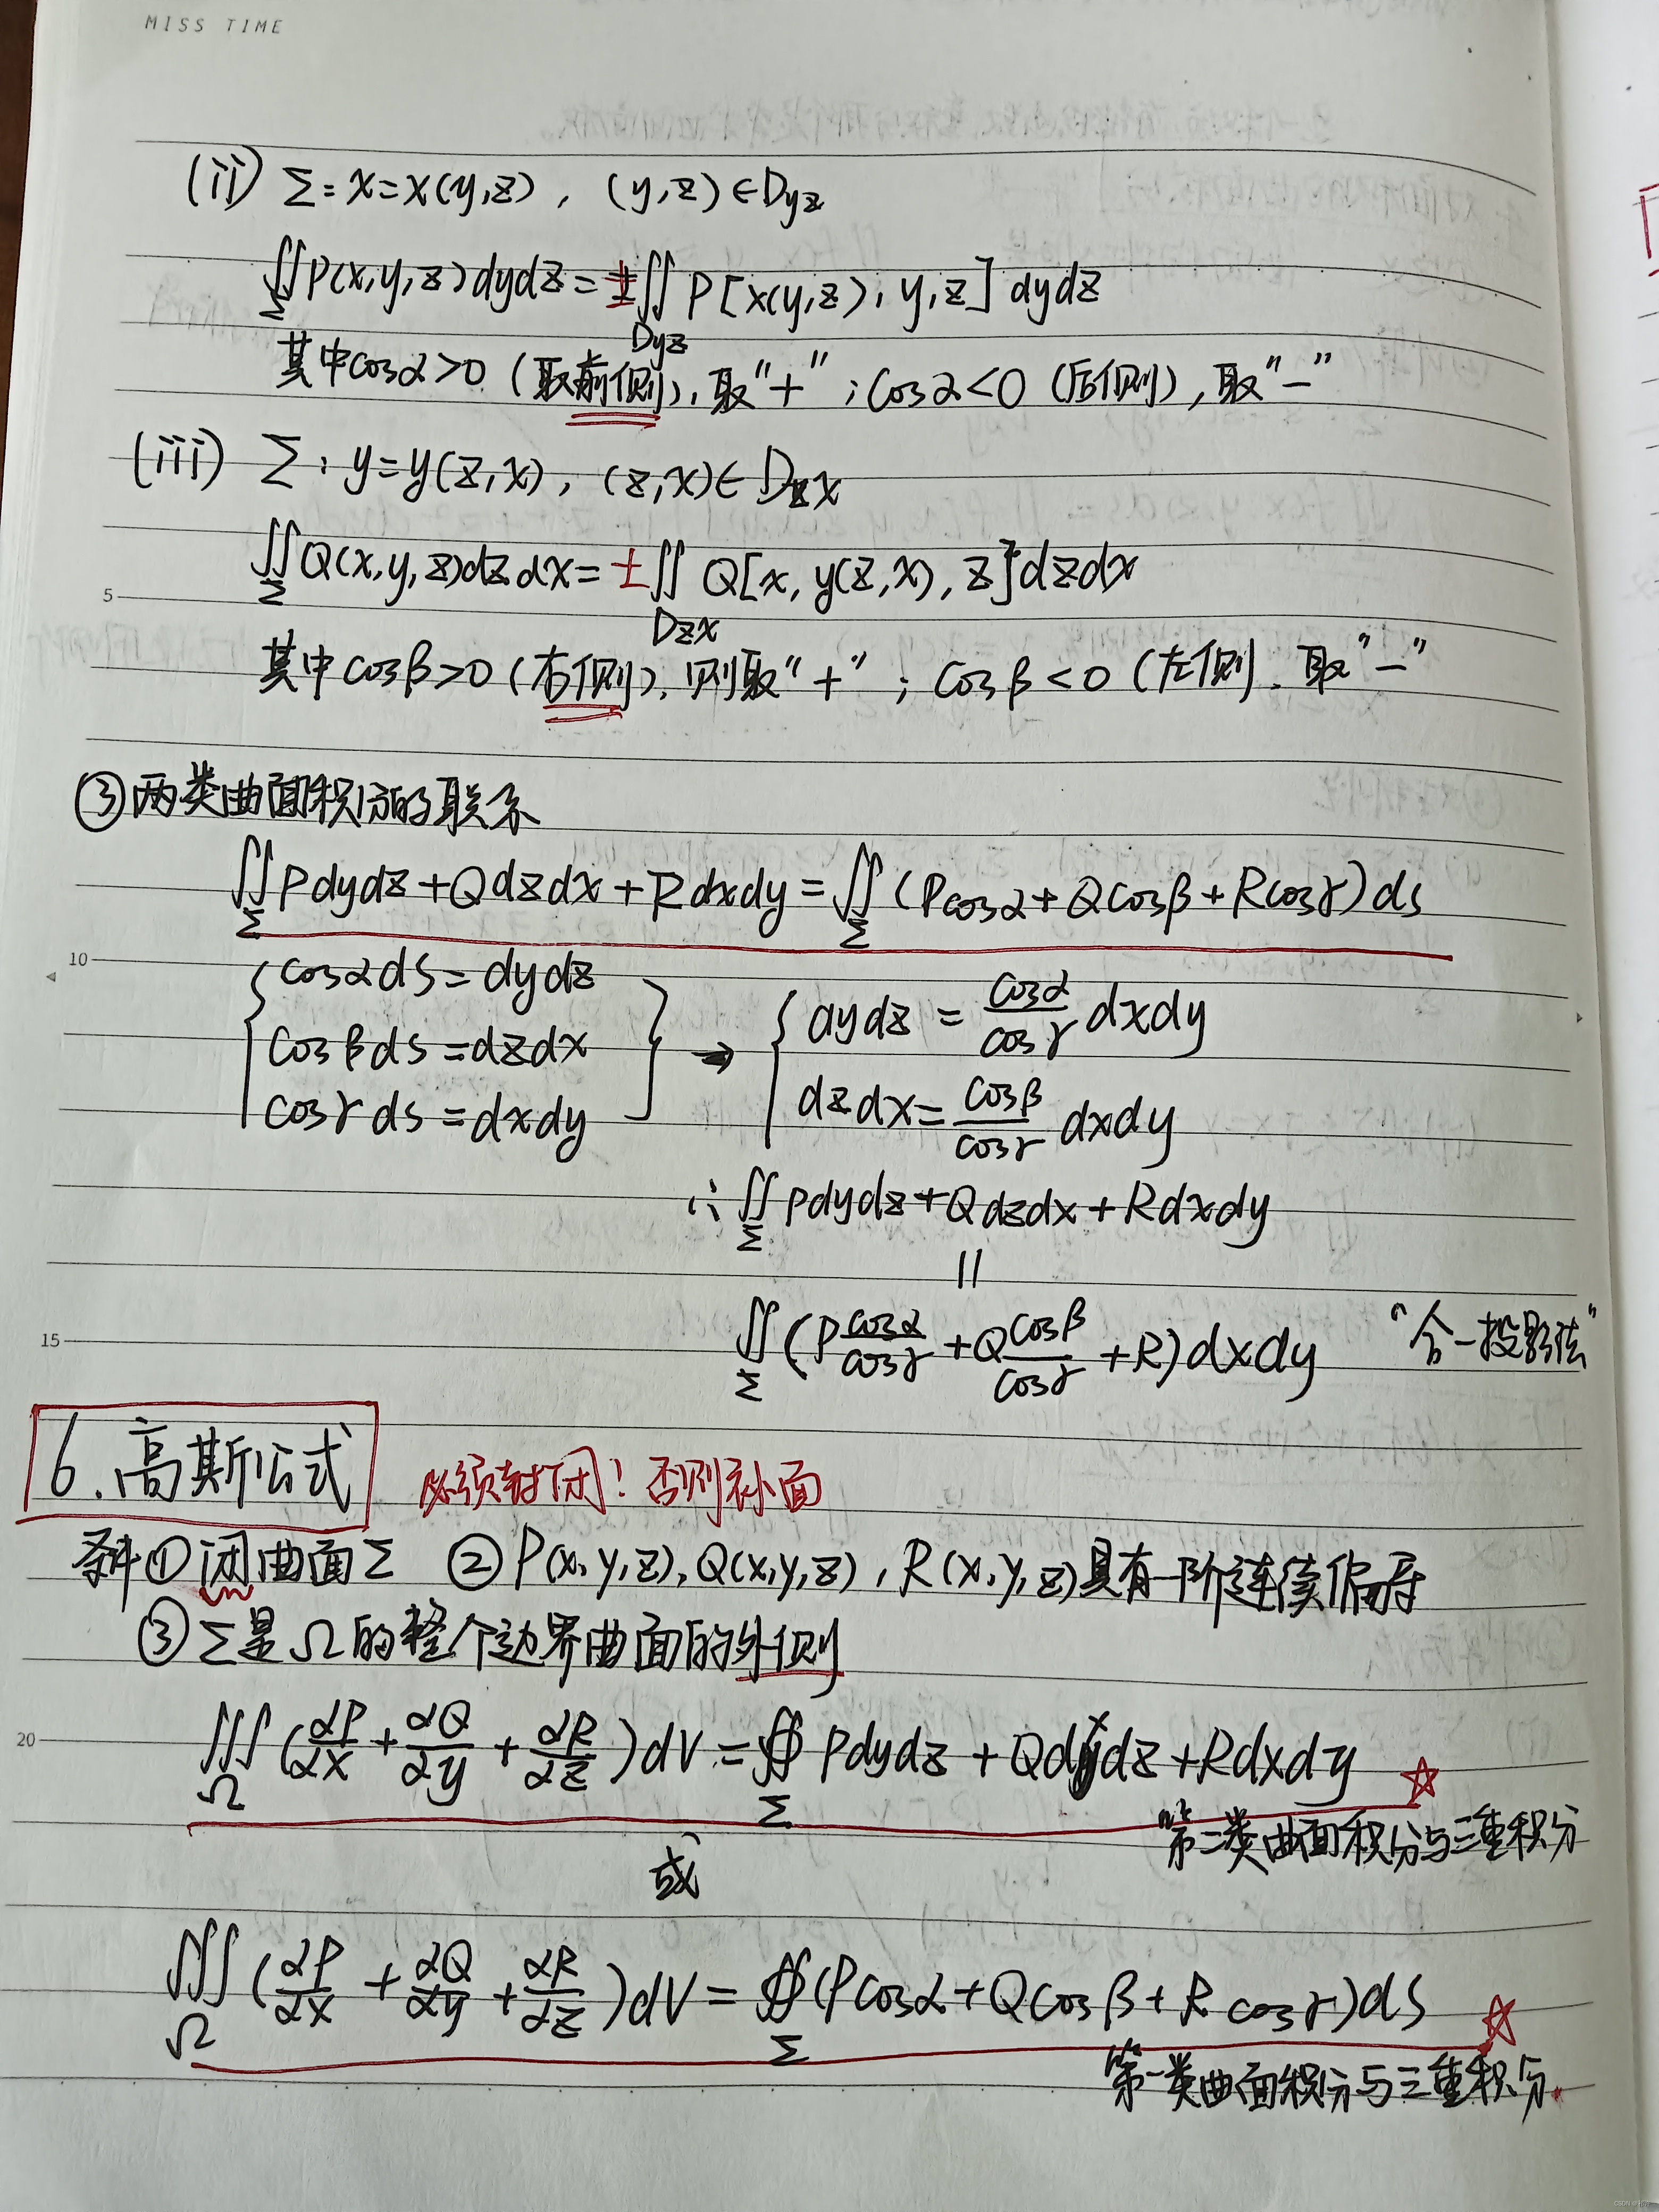 MISS TIME
(ii) Σ: x=x(y,z), (y,z)∈Dyz
∬_Σ P(x,y,z)dydz = ±∬_Dyz P[x(y,z), y,z] dydz
其中cosα>0 (取前侧), 取"+" ; cosα<0 (后侧), 取"−"
(iii) Σ: y=y(z,x), (z,x)∈Dzx
∬_Σ Q(x,y,z)dzdx = ±∬_Dzx Q[x, y(z,x), z]dzdx
5
其中cosβ>0 (右侧), 则取"+" ; cosβ<0 (左侧, 取"−"
③两类曲面积分的联系
∬_Σ Pdydz+Qdzdx+Rdxdy = ∬_Σ (Pcosα+Qcosβ+Rcosγ)ds
10
{ cosαds=dydz
cosβds=dzdx
cosγds=dxdy } → { dydz = cosα/cosγ dxdy
dzdx = cosβ/cosγ dxdy
∴ ∬_Σ Pdydz+Qdzdx+Rdxdy
||
15
∬_Σ (P cosα/cosγ + Q cosβ/cosγ + R)dxdy "合一投影法"
6.高斯公式 必须封闭! 否则补面
条件①闭曲面Σ ②P(x,y,z), Q(x,y,z), R(x,y,z)具有一阶连续偏导
③Σ是Ω的整个边界曲面的外侧
20
∭_Ω (∂P/∂x + ∂Q/∂y + ∂R/∂z)dV = ∯_Σ Pdydz + Qdxdz + Rdxdy ☆
"第二类曲面积分与三重积分
或
∭_Ω (∂P/∂x + ∂Q/∂y + ∂R/∂z)dV = ∯_Σ (Pcosα+Qcosβ+Rcosγ)ds ☆
"第一类曲面积分与三重积分.